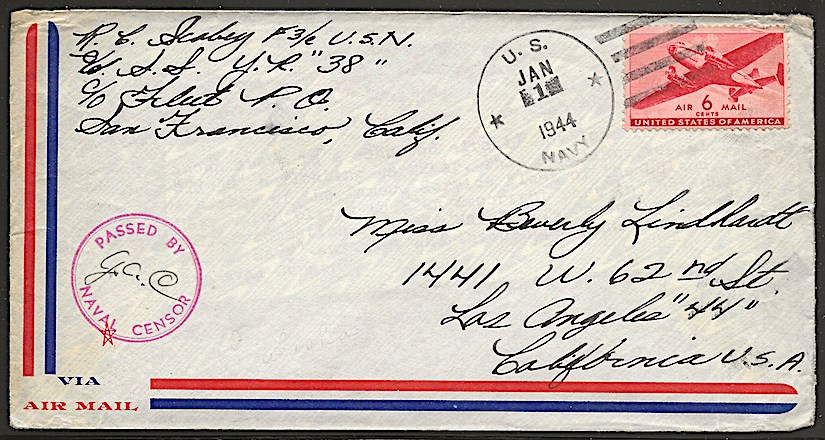 R. C. Seabey F 3/c U.S.N.
U.S.S. Y.R. "38"
c/o Fleet P.O.
San Francisco, Calif.
U. S.
JAN
1
1944
NAVY
AIR 6 MAIL
CENTS
UNITED STATES OF AMERICA
PASSED BY
NAVAL CENSOR
Miss Beverly Lindhardt
1441 W. 62nd St.
Los Angeles "44"
California U.S.A.
VIA
AIR MAIL